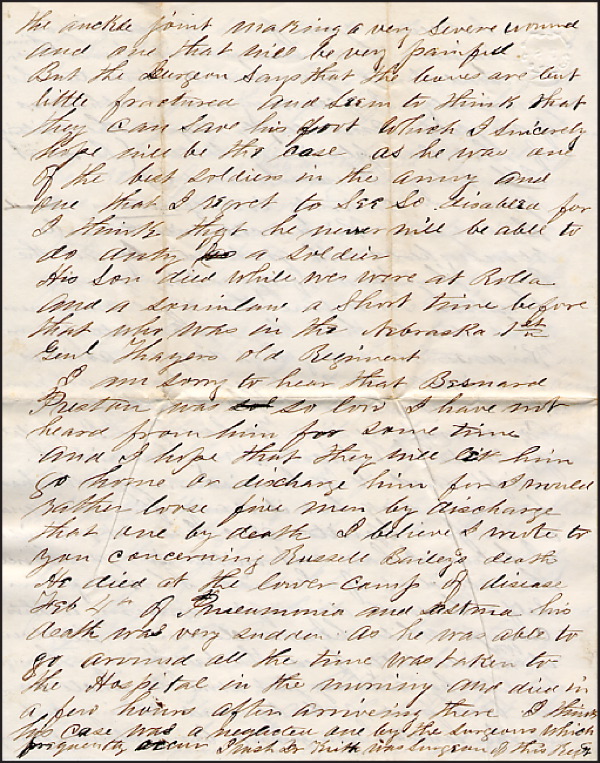 the anckle joint making a very severe wound
and one that will be very painful.
But the Surgeon says that the bones are but
little fractured and seem to think that
they can save his foot which I sincerely
hope will be the case as he was one
of the best soldiers in the army and
one that I regret to see so disabled for
I think that he never will be able to
do duty as a soldier
His Son died while we were at Rolla
and a soninlaw a short time before
that who was in the Nebraska 1st
Genl Thayers old Regiment
I am sorry to hear that Besnard
was so low I have not
heard from him for some time
and I hope that they will let him
go home or discharge him for I would
rather loose five men by discharge
that one by death I believe I wrote to
you concerning Russell Bailey's death
He died at the lower camp of disease
Feb 4th of Pneummia and astma his
death was very sudden as he was able to
go around all the time was taken to
the Hospital in the morning and died in
a few hours after arriving there I think
his case was a neglected one by the surgeons which
frequently occur I wish Dr was surgeon of this Regt